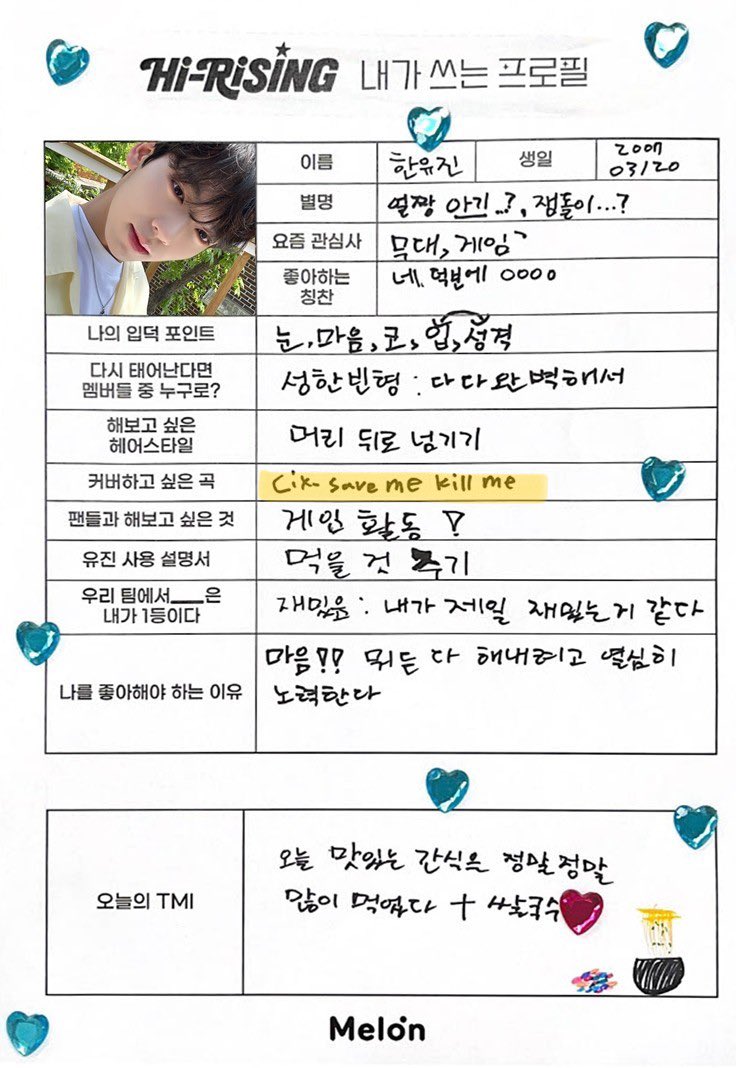 Hi-RiSiNG 내가 쓰는 프로필
이름 한유진 생일 2007 03/20
별명 얼짱 아기..?, 잼돌이...?
요즘 관심사 무대, 게임
좋아하는 칭찬 네 덕분에 ㅇㅇㅇㅇ
나의 입덕 포인트 눈, 마음, 코, 입, 성격
다시 태어난다면
멤버들 중 누구로? 성한빈형 : 다 다 완벽해서
해보고 싶은
헤어스타일 머리 뒤로 넘기기
커버하고 싶은 곡 Cix- save me kill me
팬들과 해보고 싶은 것 게임 활동 !
유진 사용 설명서 먹을 것 주기
우리 팀에서___은
내가 1등이다 재밌음 : 내가 제일 재밌는거 같다
나를 좋아해야 하는 이유 마음!! 뭐든 다 해내려고 열심히
노력한다
오늘의 TMI 오늘 맛있는 간식을 정말정말
많이 먹었다 + 쌀국수
Melon